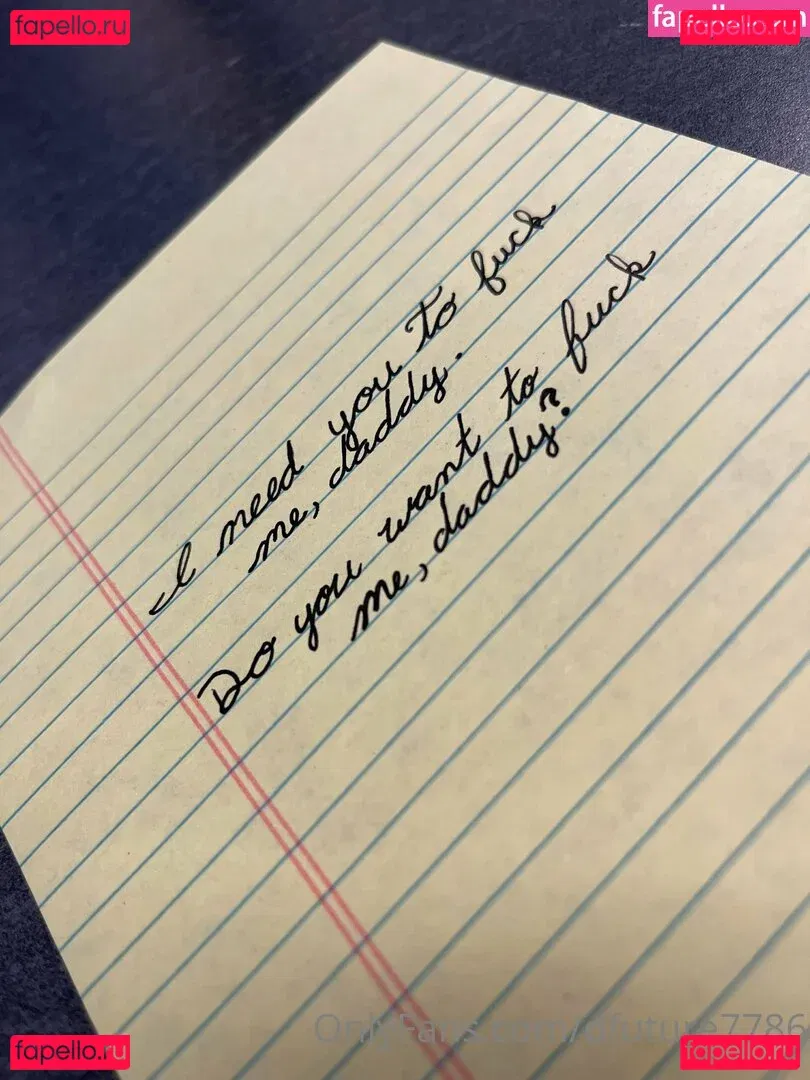 fapello.ru
fapello.ru
I need you to fuck
me, daddy.
Do you want to fuck
me, daddy?
fapello.ru
fapello.ru